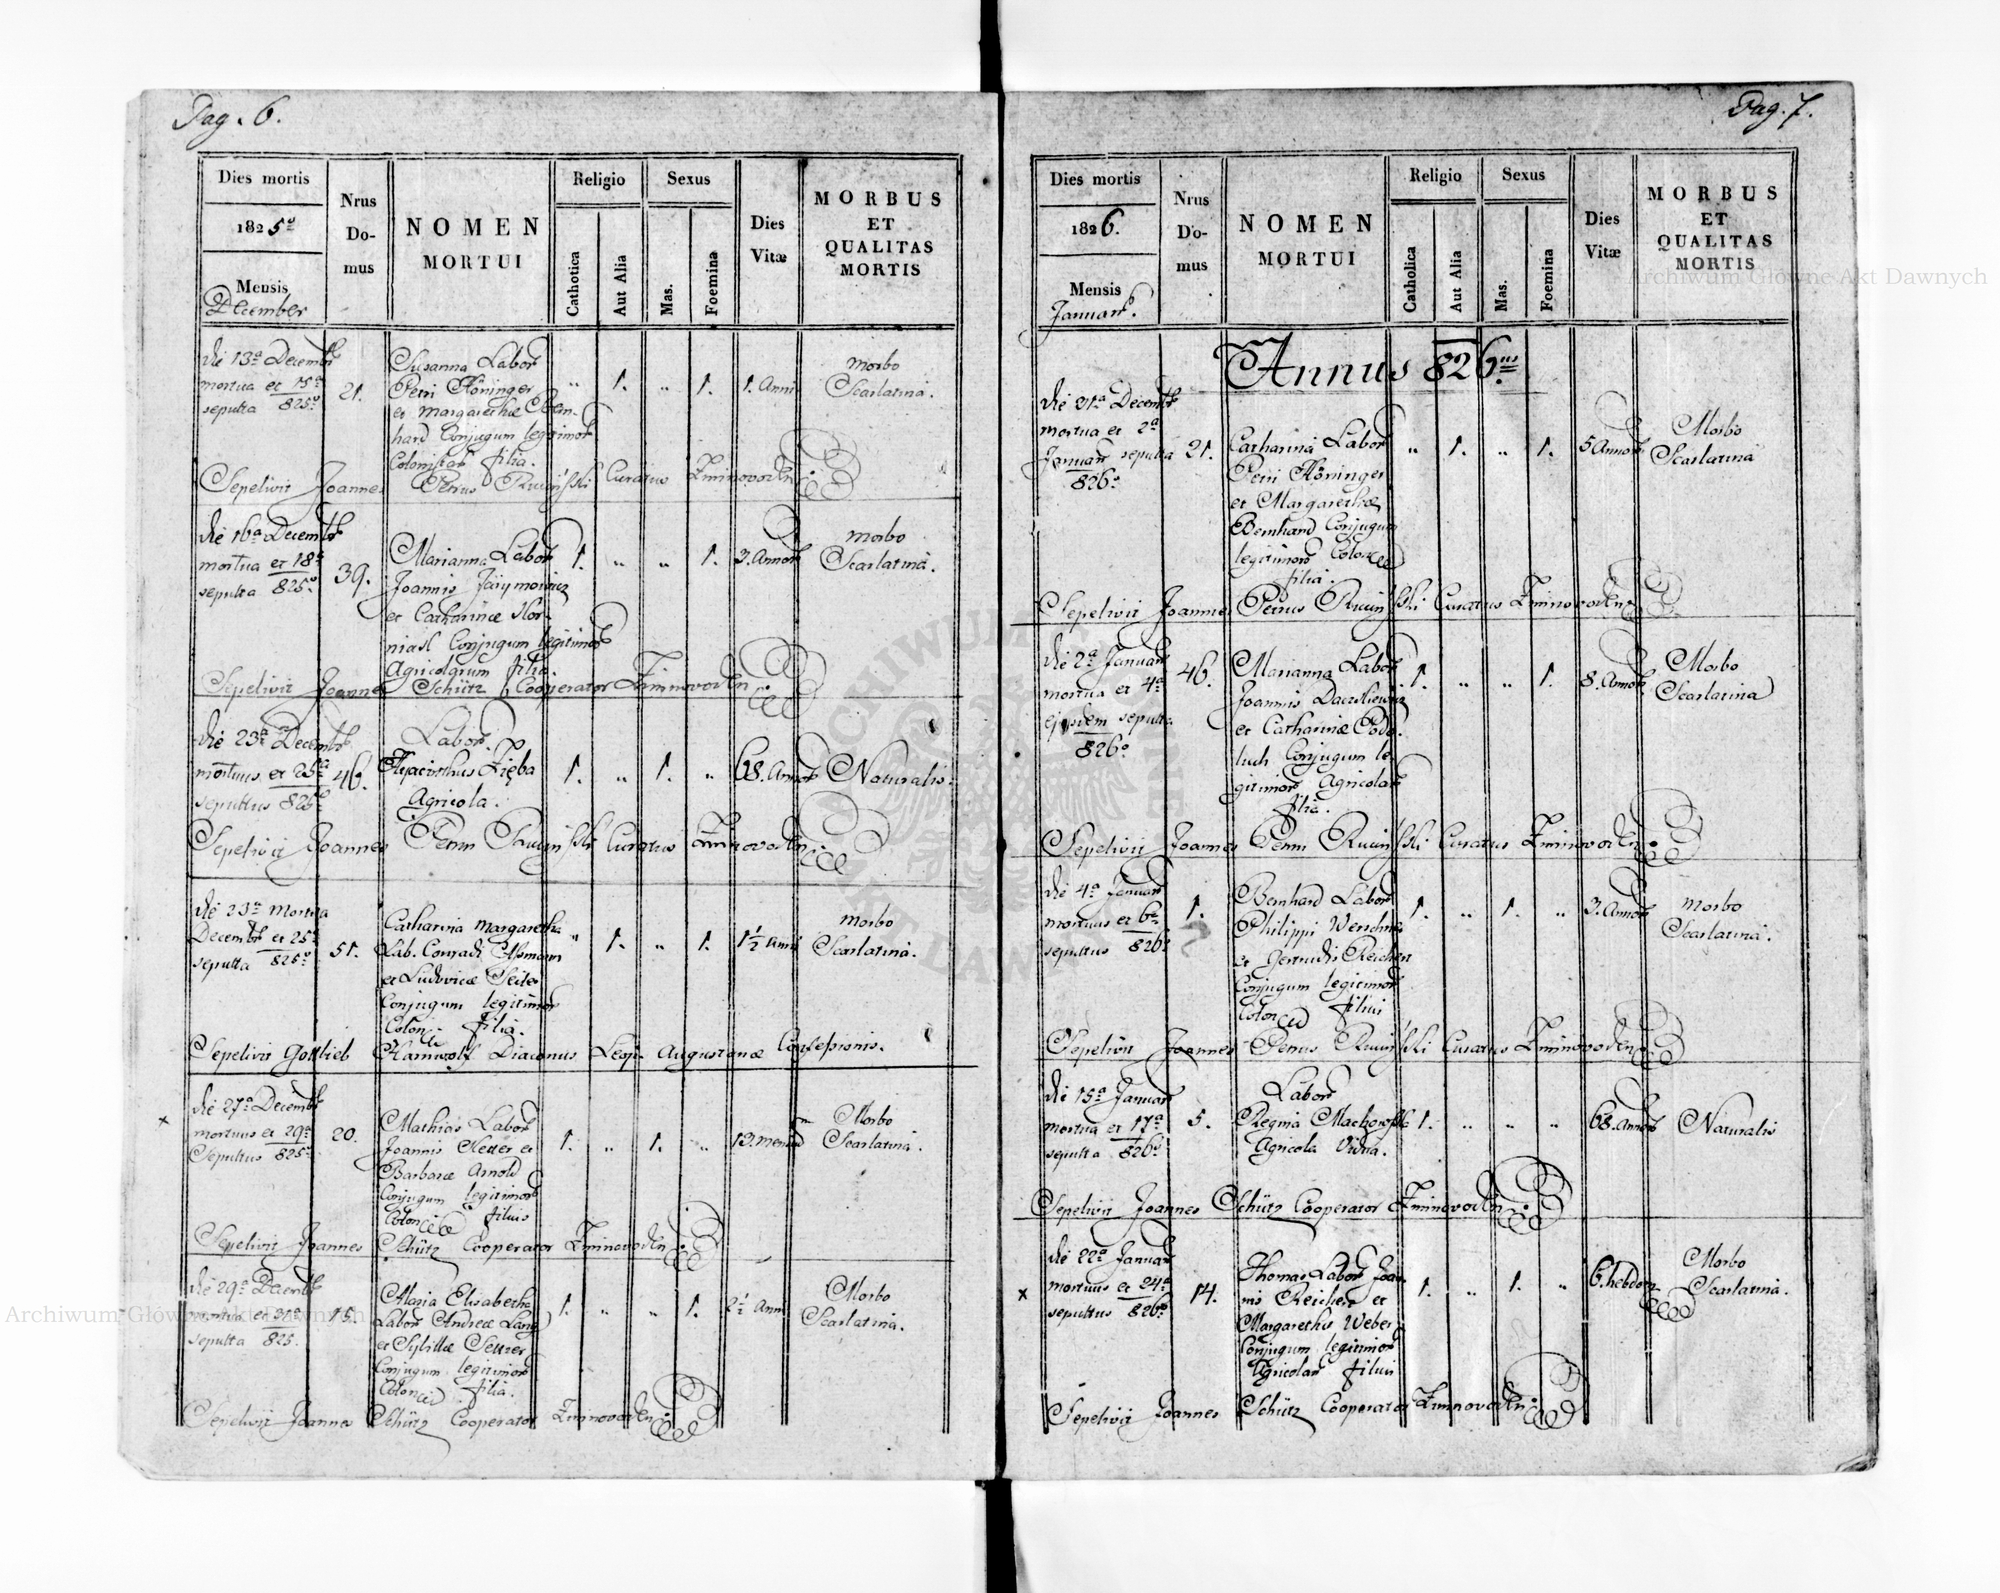 Pag. 6.
Dies mortis
1825º
Mensis
December
Nrus
Do-
mus
NOMEN
MORTUI
Religio
Catholica
Aut Alia
Sexus
Mas.
Foemina
Dies
Vitæ
MORBUS
ET
QUALITAS
MORTIS
die 13ª Decembr
mortua et 15ª
sepulta 825º
21.
Susanna Labor
Petri Höninger
et Margarethæ Bern-
hard Conjugum legitimor
Colonistar filia.
" 1. " 1.
1. Anni
Morbo
Scarlatina.
Sepelivit Joannes Petrus Curatus Zimnovodens
die 16ª Decembr
mortua et 18ª
sepulta 825º
39.
Marianna Labor
Joannis
et Catharinæ Hor-
niasl Conjugum legitimor
Agricolarum filia.
1. " " 1.
3. Annor
Morbo
Scarlatina.
Sepelivit Joannes Schütz Cooperator Zimnovodens
die 23ª Decembr
mortuus et 25ª
sepultus 825º
46.
Labor.
Hyacinthus Zięba
Agricola.
1. " 1. "
68. Annor
Naturalis.
Sepelivit Joannes Petrus Curatus Zimnovodens
die 23ª Mortua
Decembr et 25ª
sepulta 825º
51.
Catharina Margaretha
Lab. Conradi
et Ludovicæ Seiler
Conjugum legitimor
Colon filia.
" 1. " 1.
1½ Anni
Morbo
Scarlatina.
Sepelivit Gottlieb Diaconus Leop. Augustanæ Confessionis.
x
die 27ª Decembr
mortuus et 29ª
Sepultus 825º
20.
Mathias Labor
Joannis Netter et
Barbaræ Arnold
Conjugum legitimor
Colon filius
1. " 1. "
13. Mensium
Morbo
Scarlatina.
Sepelivit Joannes Schütz Cooperator Zimnovodens
die 29ª Decembr
mortua et 31ª
sepulta 825.
15.
Maria Elisabetha
Labor Andreæ Lang
et Sybillæ Setzer
Conjugum legitimor
Colon filia.
1. " " 1.
2½ Anni
Morbo
Scarlatina.
Sepelivit Joannes Schütz Cooperator Zimnovodens
Pag. 7.
Dies mortis
1826.
Mensis
Januar.
Nrus
Do-
mus
NOMEN
MORTUI
Religio
Catholica
Aut Alia
Sexus
Mas.
Foemina
Dies
Vitæ
MORBUS
ET
QUALITAS
MORTIS
Annus 826us
die 31ª Decembr
mortua et 2ª
Januar sepulta
826º
21.
Catharina Labor
Petri Höninger
et Margarethæ
Bernhard Conjugum
legitimor Colon
filia.
" 1. " 1.
5 Annor
Morbo
Scarlatina
Sepelivit Joannes Petrus Curatus Zimnovodens
die 2ª Januar
mortua et 4ª
ejusdem sepulta
826º
46.
Marianna Labor
Joannis
et Catharinæ Podo-
luch Conjugum le-
gitimor Agricolar
filia.
1. " " 1.
8. Annor
Morbo
Scarlatina
Sepelivit Joannes Petrus Curatus Zimnovodens
die 4ª Januar
mortuus et 6ª
sepultus 826º
1.
Bernhard Labor
Philippi
et Gertrudis Reichert
Conjugum legitimor
Colon filius
1. " 1. "
3. Annor
Morbo
Scarlatina.
Sepelivit Joannes Petrus Curatus Zimnovodens
die 15ª Januar
mortua et 17ª
sepulta 826º
5.
Labor
Regina
Agricola Vidua.
1. " " "
68. Annor
Naturalis
Sepelivit Joannes Schütz Cooperator Zimnovodens
x
die 22ª Januar
mortuus et 24ª
sepultus 826º
14.
Thomas Labor Joan-
nis Reichert et
Margarethæ Weber
Conjugum legitimor
Agricolar filius
1. " 1. "
6. hebdom
Morbo
Scarlatina.
Sepelivit Joannes Schütz Cooperator Zimnovodens
Archiwum Główne Akt Dawnych
Archiwum Główne Akt Dawnych